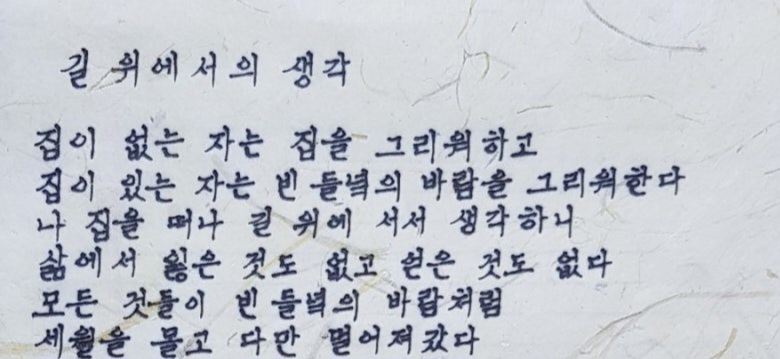 길 위에서의 생각
집이 없는 자는 집을 그리워하고
집이 있는 자는 빈 들녘의 바람을 그리워한다
나 집을 떠나 길 위에 서서 생각하니
삶에서 잃은 것도 없고 얻은 것도 없다
모든 것들이 빈 들녘의 바람처럼
세월을 몰고 다만 멀어져갔다